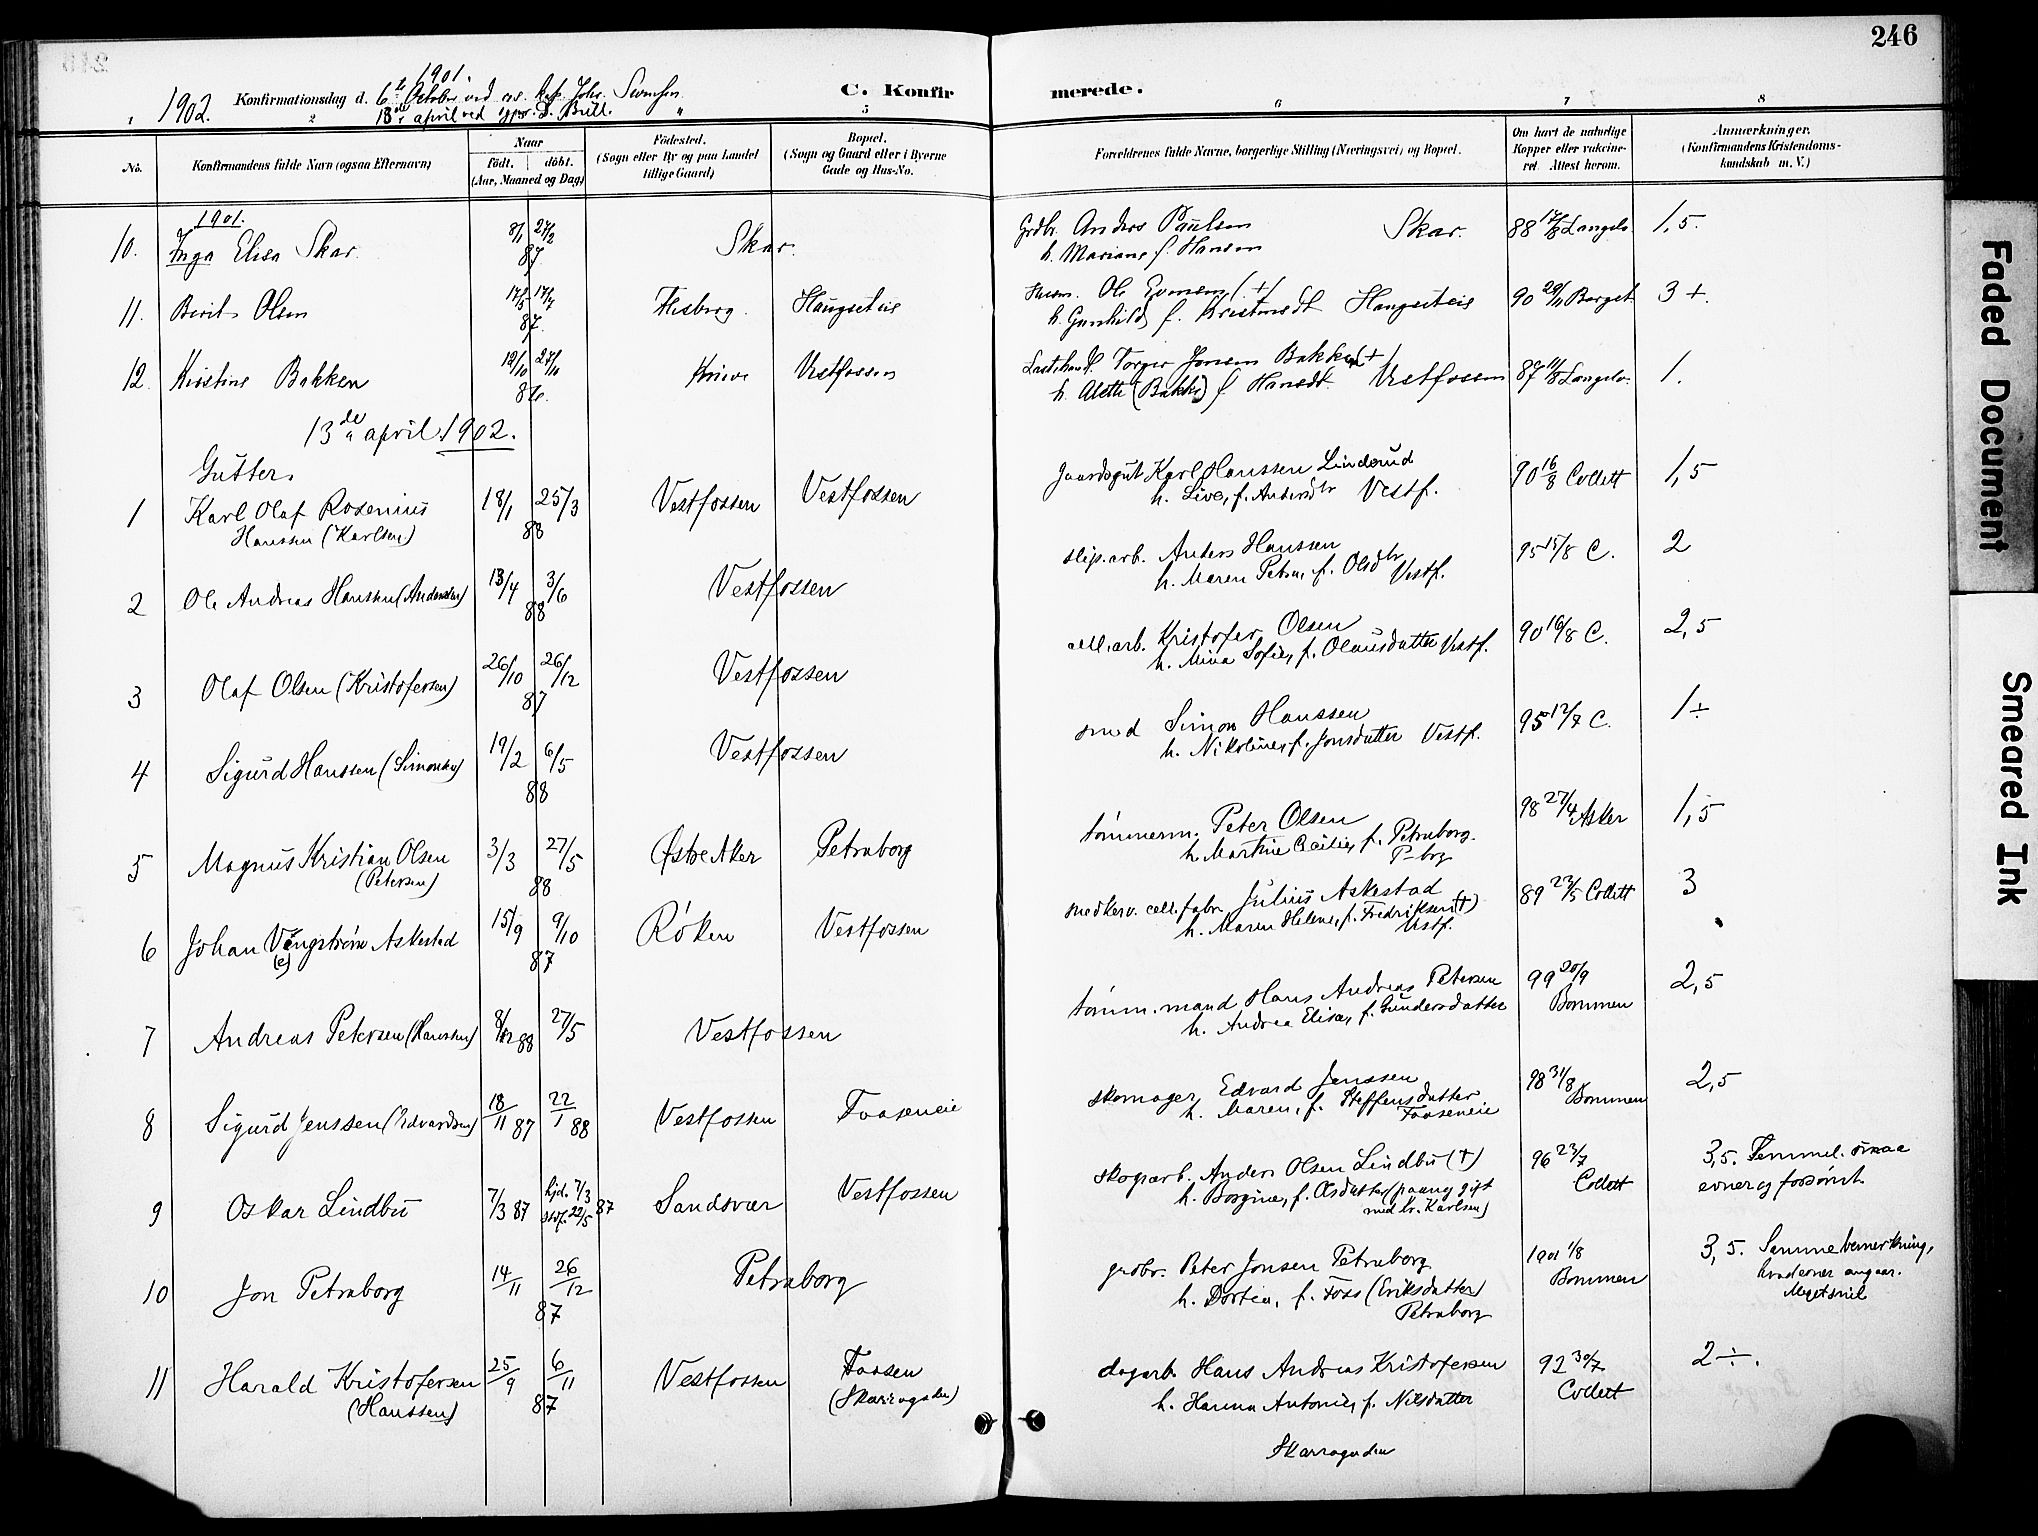 246
1901.
1902. Konfirmationsdag d. 6te October ved res. kap. Joh.
13de april ved D. Bull.
C. Konfirmerede.
1 2 5 6 7 8
No.
Konfirmandens fulde Navn (ogsaa Efternavn)
Naar
født. døbt.
(Aar, Maaned og Dag)
Fødested.
(Sogn eller By og paa Landet
tillige Gaard)
Bopæl.
(Sogn og Gaard eller i Byerne
Gade og Hus-No.
Forældrenes fulde Navne, borgerlige Stilling (Næringsvei) og Bopæl.
Om havt de naturlige
Kopper eller vakcine-
ret. Attest herom.
Anmærkninger.
(Konfirmandens Kristendoms-
kundskab m. V.)
1901.
10. Inga Elisa Skar. 8/1 27/2 87 Skar. Grdbr. Anders Paulsen Skar. 88 17/8 Langelv. 1,5.
h. Mariane f. Hansen
11. Berit Olsen 17/5 17/7 87. Flesberg. Haugseteie Husm. Ole Evensen (+) Haugseteie 90 29/11 Borget 3+.
h. Gunhild f. Kristensdt
12. Kristine Bakken 12/10 27/11 86. Vestfossen Torger Jonsen Bakke (+) 87 11/8 Langelv. 1.
h. Alette (Bakke) f. Hansdt. Vestfossen
13de april 1902.
Gutter.
1 Karl Olaf Rosenius 18/1 25/3 88 Vestfossen Vestfossen Gaardsgut Karl Hanssen Linderud 90 16/8 Collett 1,5
Hanssen (Karlsen) h. Live, f. Andersdtr Vestf.
2 Ole Andreas Hanssen (Andersen) 13/4 3/6 88 Vestfossen slip. arb. Anders Hanssen 95 15/8 C. 2
h. Maren Petra, f. Olsdtr Vestf.
3 Olaf Olsen (Kristofersen) 26/10 26/12 87 Vestfossen cell. arb. Kristofer Olsen 90 16/8 C. 2,5
h. Mina Sofie, f. Olausdatter Vestf.
4 Sigurd Hanssen (Simonsen) 19/2 6/5 88 Vestfossen smed Simon Hanssen 95 12/7 C. 1÷
h. Nikoline, f. Jonsdatter Vestf.
5 Magnus Kristian Olsen 3/3 27/5 88 Østre Aker Petraborg tømmerm. Peter Olsen 98 27/4 Asker 1,5
(Petersen) h. Martine Cecilie, f. Petraborg.
P-brg
6 Johan Vengstrøm Askestad 15/9 9/10 87 Røken Vestfossen snedkerv. cell. fabr. Julius Askestad 89 22/5 Collett 3
(e) h. Maren Helene, f. Fredriksen (+)
Vestf.
7 Andreas Petersen (Hanssen) 8/12 88 27/5 Vestfossen tømm. mand Hans Andreas Petersen 99 20/9 2,5
h. Andrea Elise, f. Gundersdatter Bommen
8 Sigurd Jenssen (Edvardsen) 18/11 87 22/1 88 Vestfossen Faaseneie skomager Edvard Jenssen 98 31/8 2,5
h. Maren, f. Steffensdatter Bommen
Faaseneie
9 Oskar Lindbu 7/3 87 hjd. 7/3 Stdf. 22/5 87 Sandsvær Vestfossen skogsarb. Anders Olsen Lindbu (+) 96 23/7 3,5. Temmel. smaa
h. Borgine, f. Olsdatter (paany gift Collett evner og forsømt.
med hr. Karlsen)
10 Jon Petraborg 14/11 26/12 87 Petraborg grdbr. Peter Jonsen Petraborg 1901 1/8 3,5. Samme bemerkning,
h. Dortea, f. Foss (Eriksdatter) Bommen hvad evner angaar.
Petraborg Meget snil
11 Harald Kristofersen 25/9 6/11 87 Vestfossen Faasen dagarb. Hans Andreas Kristofersen 92 30/7 2÷.
(Hanssen) (Skarragaden) h. Hanna Antonie, f. Nilsdatter Collett
Skarragaden
Faded Document
Smeared Ink